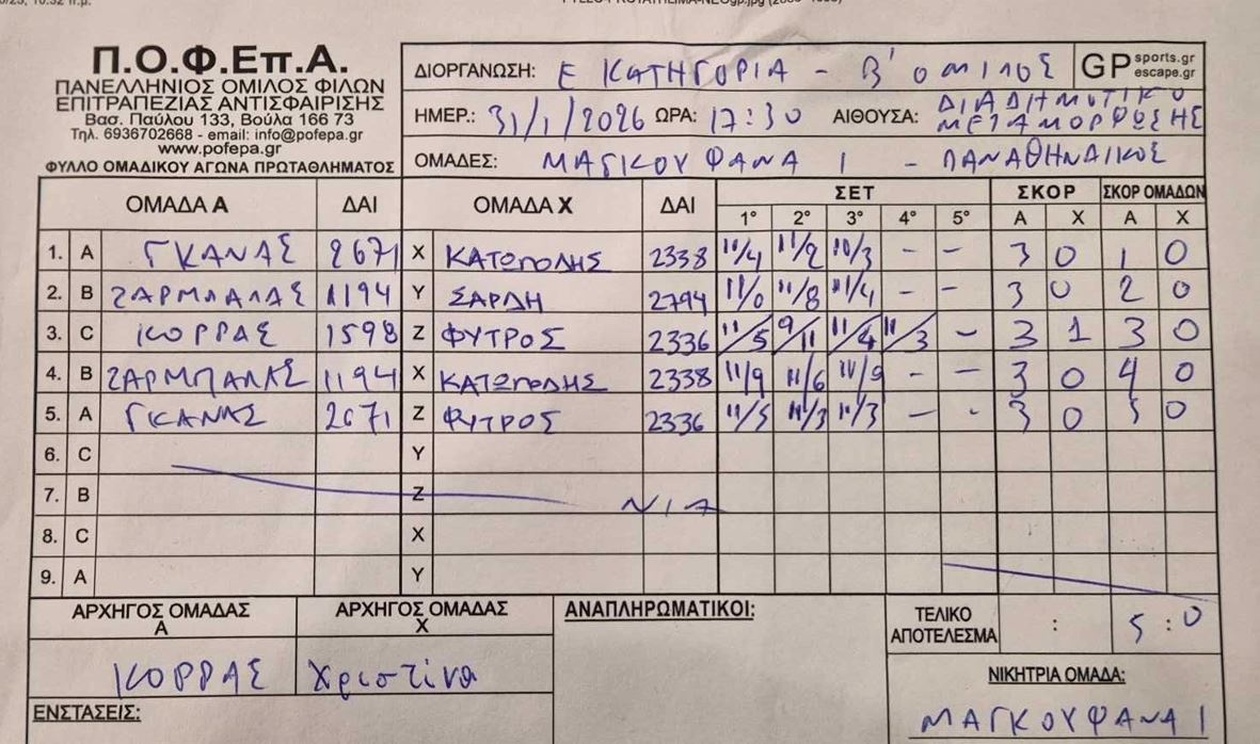 Π.Ο.Φ.Επ.Α.
ΠΑΝΕΛΛΗΝΙΟΣ ΟΜΙΛΟΣ ΦΙΛΩΝ
ΕΠΙΤΡΑΠΕΖΙΑΣ ΑΝΤΙΣΦΑΙΡΙΣΗΣ
Βασ. Παύλου 133, Βούλα 166 73
Τηλ. 6936702668 - email: info@pofepa.gr
www.pofepa.gr
ΦΥΛΛΟ ΟΜΑΔΙΚΟΥ ΑΓΩΝΑ ΠΡΩΤΑΘΛΗΜΑΤΟΣ
ΔΙΟΡΓΑΝΩΣΗ: Ε ΚΑΤΗΓΟΡΙΑ - Β' ΟΜΙΛΟΣ
GP sports.gr
escape.gr
ΗΜΕΡ.: 31/1/2026 ΩΡΑ: 17:30 ΑΙΘΟΥΣΑ: ΔΙΑΔΗΜΟΤΙΚΟ
ΜΕΤΑΜΟΡΦΩΣΗΣ
ΟΜΑΔΕΣ: ΜΑΓΚΟΥΦΑΝΑ 1 - ΠΑΝΑΘΗΝΑΙΚΟΣ
ΟΜΑΔΑ Α ΔΑΙ ΟΜΑΔΑ Χ ΔΑΙ ΣΕΤ ΣΚΟΡ ΣΚΟΡ ΟΜΑΔΩΝ
1° 2° 3° 4° 5° Α Χ Α Χ
1. A ΓΚΑΝΑΣ 2671 X ΚΑΤΩΠΟΔΗΣ 2338 11/4 11/2 /3 - - 3 0 1 0
2. B ΖΑΡΜΠΑΛΑΣ 1194 Y ΣΑΡΔΗ 2794 11/0 11/8 11/4 - - 3 0 2 0
3. C ΚΟΡΡΑΣ 1598 Z ΦΥΤΡΟΣ 2336 11/5 9/11 11/4 11/3 - 3 1 3 0
4. B ΖΑΡΜΠΑΛΑΣ 1194 X ΚΑΤΩΠΟΔΗΣ 2338 11/9 11/6 11/9 - - 3 0 4 0
5. A ΓΚΑΝΑΣ 2671 Z ΦΥΤΡΟΣ 2336 11/5 11/3 11/3 - - 3 0 5 0
6. C Y
7. B Z Ν/Α
8. C X
9. A Y
ΑΡΧΗΓΟΣ ΟΜΑΔΑΣ
Α
ΑΡΧΗΓΟΣ ΟΜΑΔΑΣ
Χ
ΑΝΑΠΛΗΡΩΜΑΤΙΚΟΙ:
ΤΕΛΙΚΟ
ΑΠΟΤΕΛΕΣΜΑ : 5 : 0
ΚΟΡΡΑΣ Χριστίνα
ΝΙΚΗΤΡΙΑ ΟΜΑΔΑ:
ΜΑΓΚΟΥΦΑΝΑ 1
ΕΝΣΤΑΣΕΙΣ: